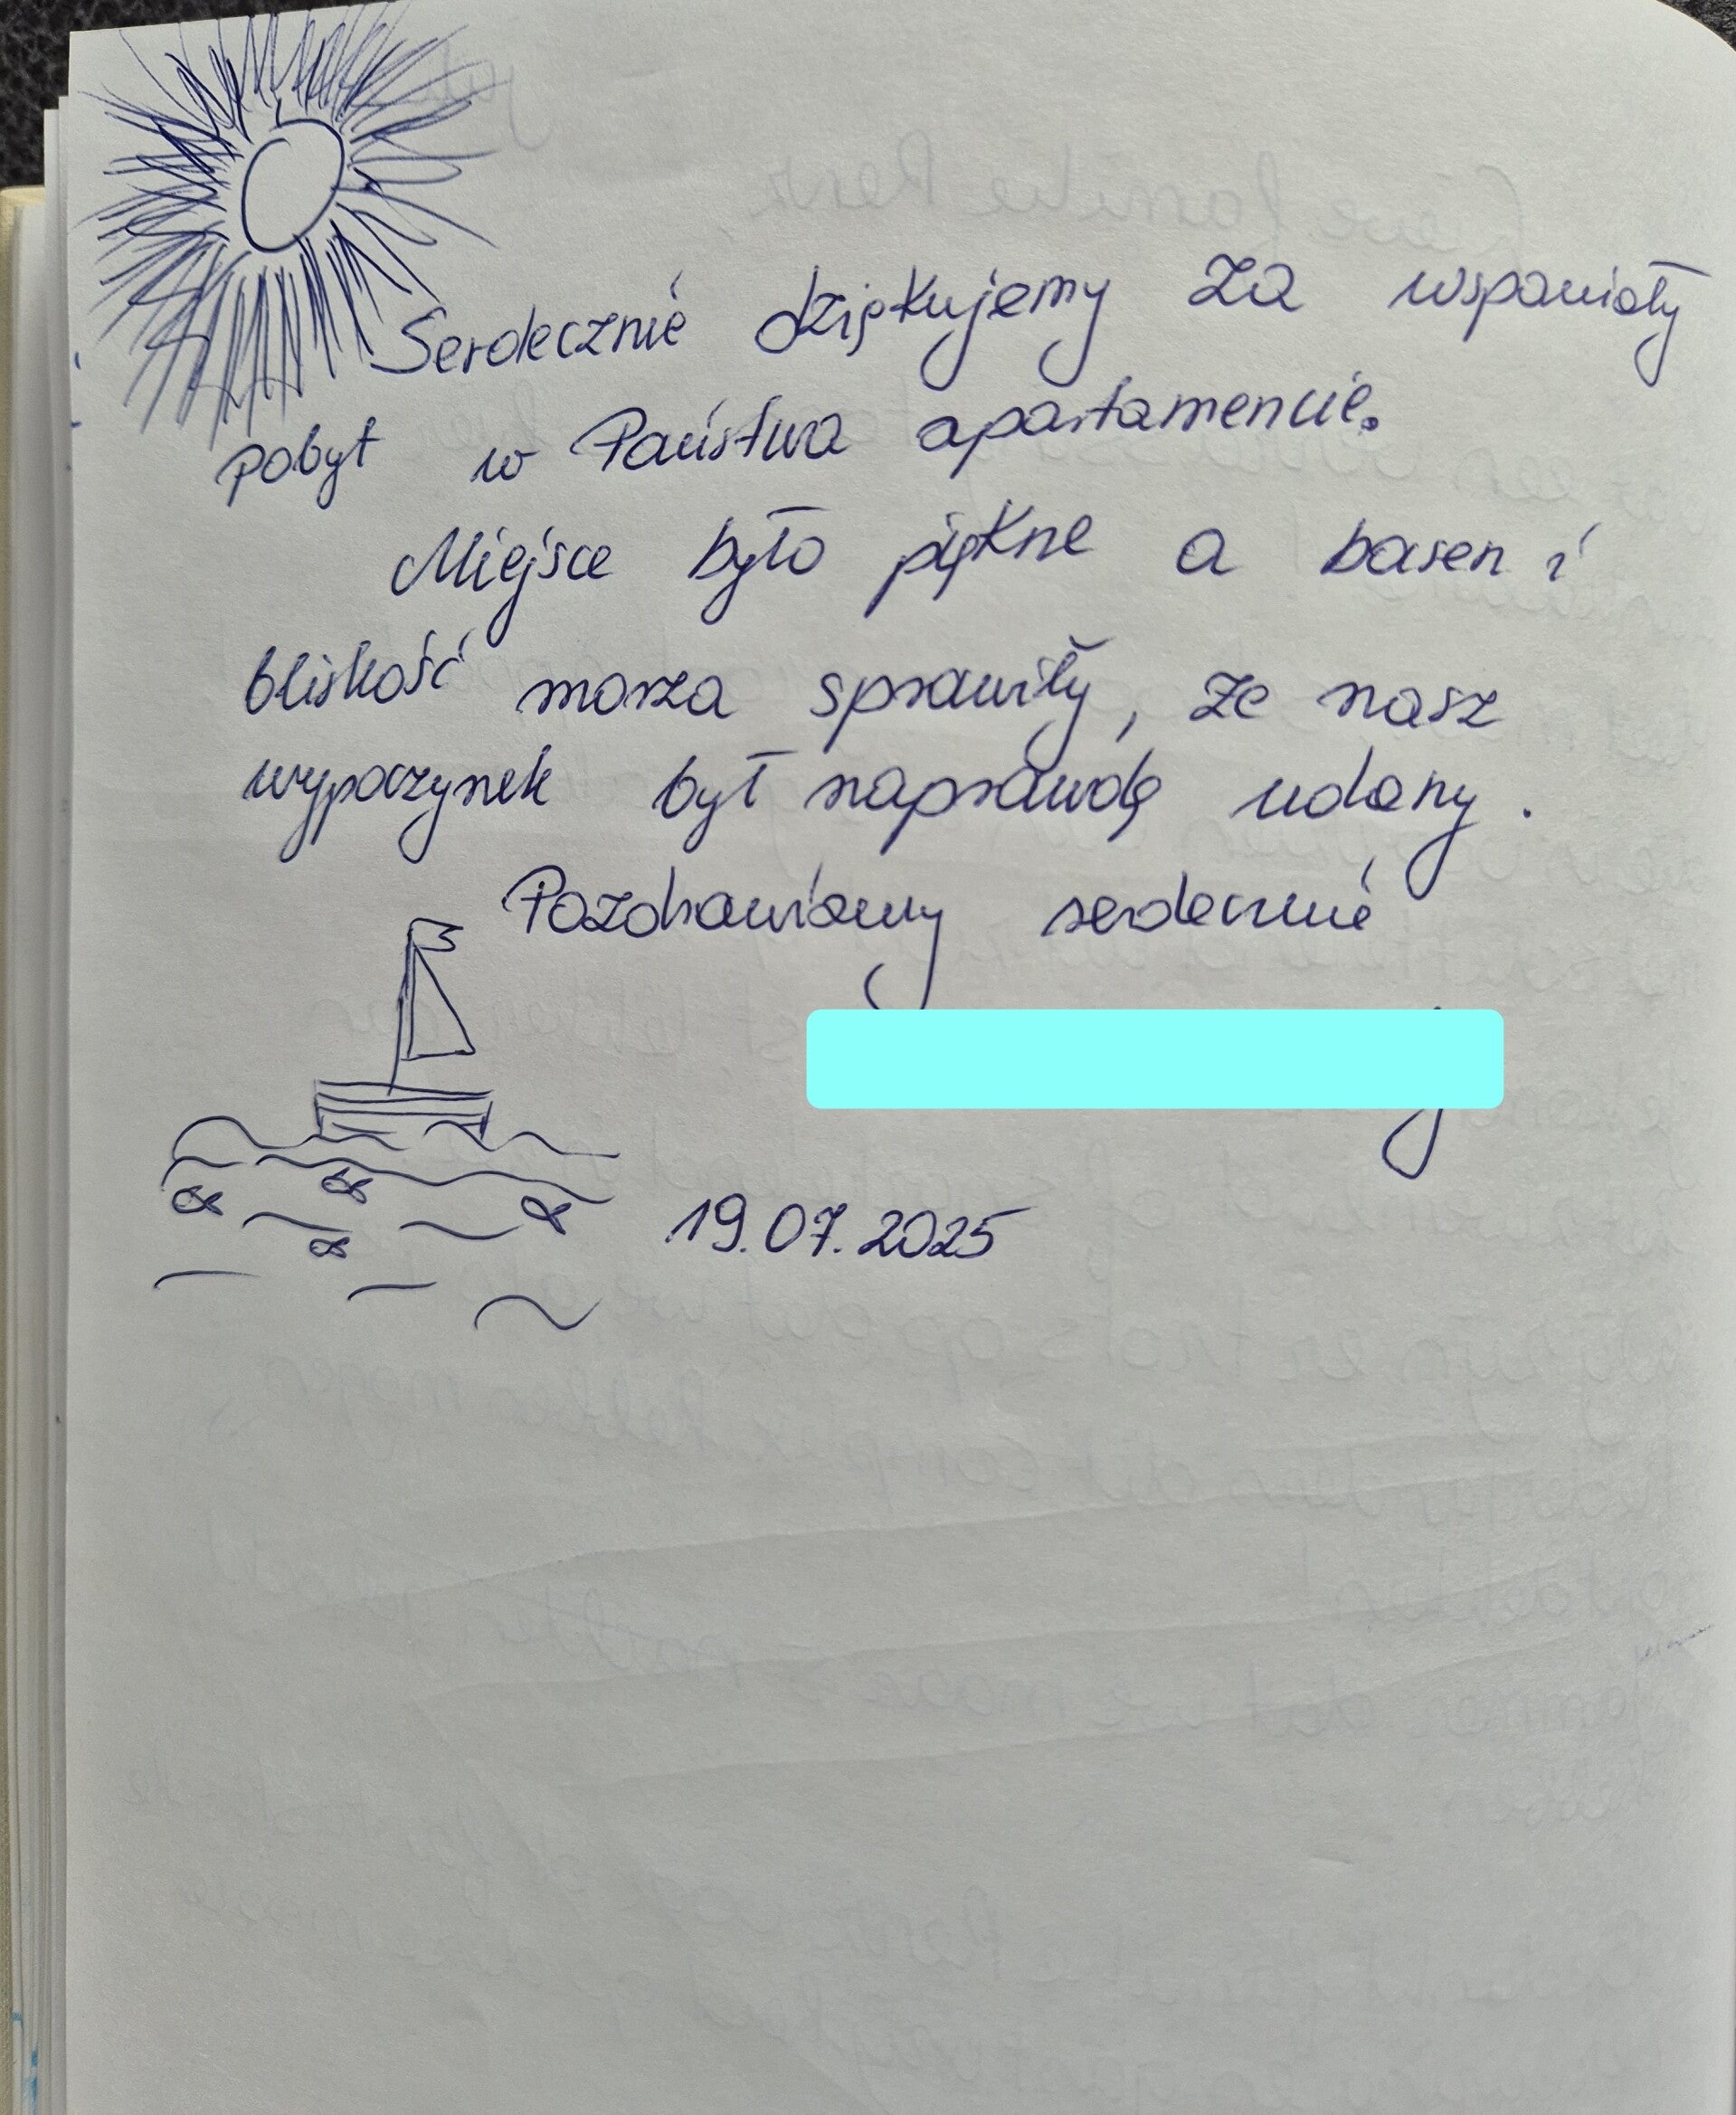 Serdecznie dziękujemy za wspaniały
pobyt w Państwa apartamencie.
Miejsce było piękne a basen i
bliskość morza sprawiły, że nasz
wypoczynek był naprawdę udany.
Pozdrawiamy serdecznie
19.07.2025